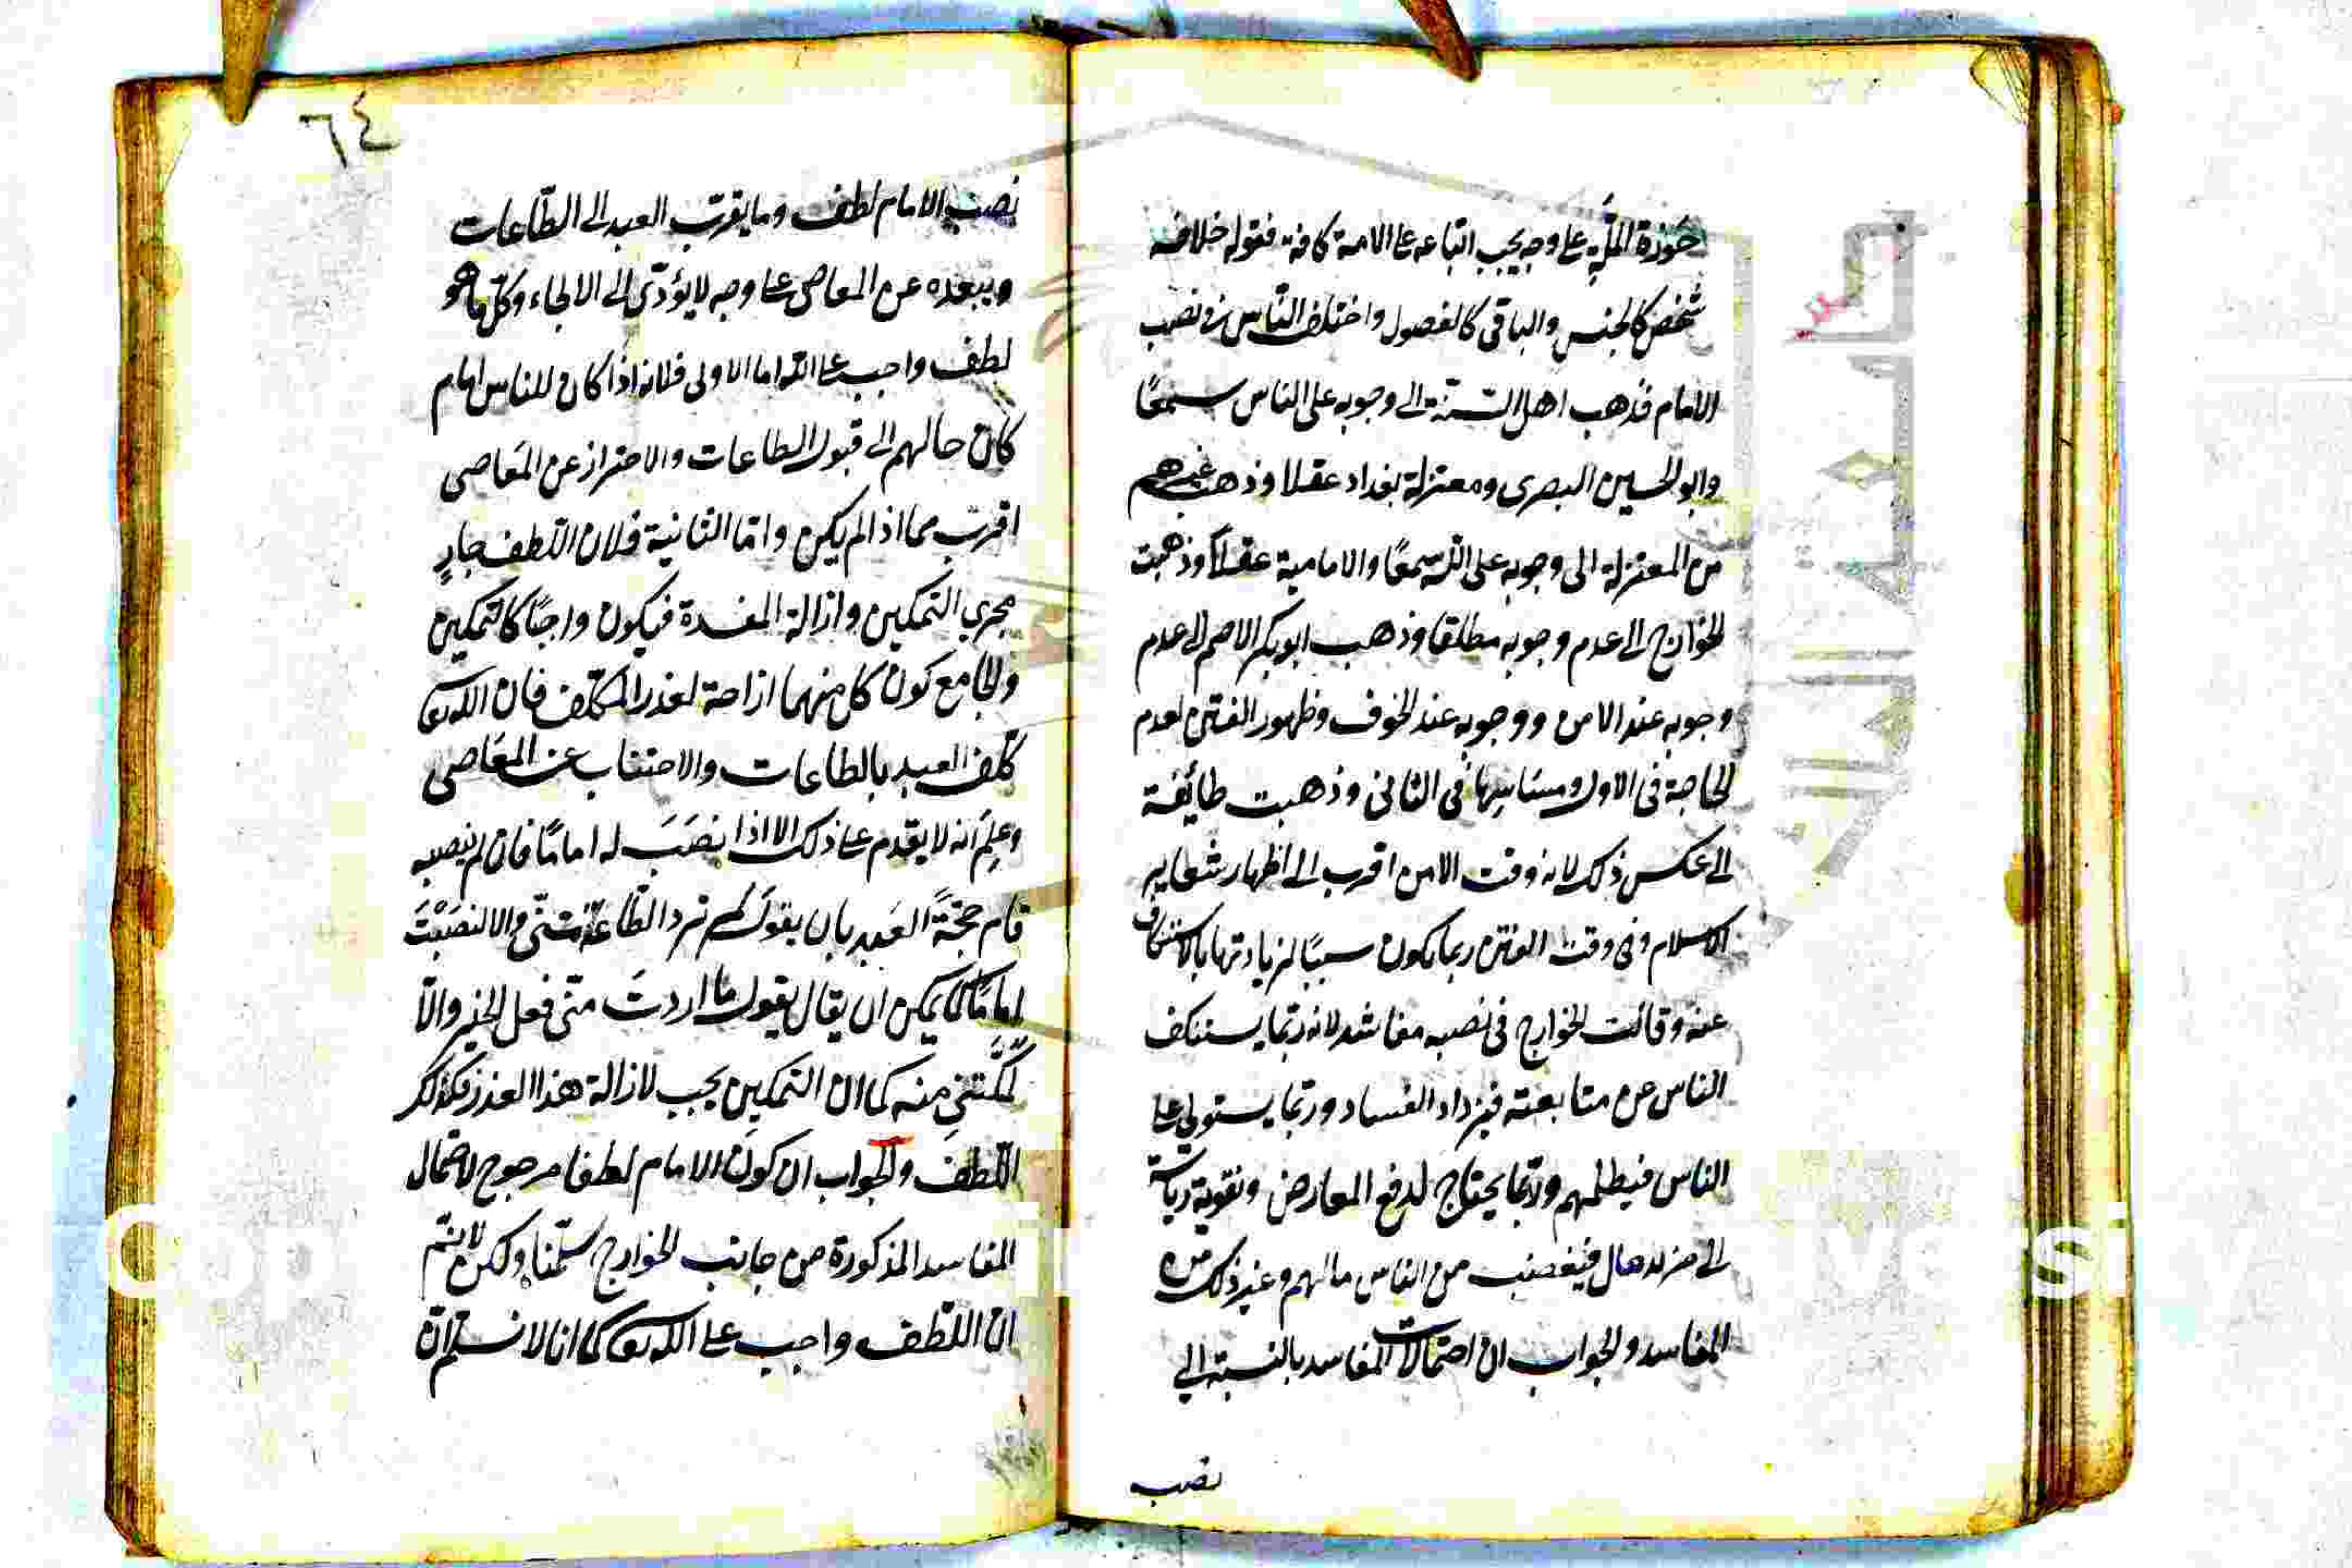 حوزة الملة على وجه يجب اتباعه على الامة كافة فقوله خلافة
شخص كالجنس والباقى كالفصول واختلف الناس فى نصب
الامام فذهب اهل السنة الى وجوبه على الناس سمعًا
وابو الحسين البصرى ومعتزلة بغداد عقلا وذهب غيرهم
من المعتزلة الى وجوبه على الله سمعًا والامامية عقلا وذهبت
الخوارج الى عدم وجوبه مطلقا وذهب ابو بكر الاصم الى عدم
وجوبه عند الامن ووجوبه عند الخوف وظهور الفتن لعدم
الحاجة فى الاول ومساسها فى الثانى وذهبت طائفة
الى عكس ذلك لانه وقت الامن اقرب الى اظهار شعاير
الاسلام وفى وقت الفتن ربما يكون سببًا لزيادتها بالاستنكاف
عنه وقالت الخوارج فى نصبه مفاسد لانه ربما يستنكف
الناس عن متابعته فيزداد الفساد وربما يستولى على
الناس فيظلمهم وربما يحتاج لدفع المعارض وتقوية رياسة
الى مال فيغصب من الناس مالهم وغير ذلك من
المفاسد والجواب ان احتمالات المفاسد بالنسبة الى
نصب
٦٤
نصب الامام لطف وما يقرب العبد الى الطاعات
ويبعده عن المعاصى على وجه لا يؤدّى الى الالجاء وكلّ ما هو
لطف واجب على الله اما الاولى فلانه اذا كان للناس امام
كان حالهم الى قبول الطاعات والاحتراز عن المعاصى
اقرب مما اذا لم يكن وامّا الثانية فلان اللطف جارٍ
مجرى التمكين وازالة المفسدة فيكون واجبًا كالتمكين
والجامع كون كل منهما ازاحة لعذر المكلف فان الله تعا
كلّف العبد بالطاعات والاجتناب عن المعاصى
وعلِم انه لا يقدم على ذلك الا اذا نصَبَ له امامًا فان لم ينصبه
قام حجّة العبد بان يقول لم ترد الطاعة منّى والا لنصَبْتَ
امامًا كما يمكن ان يقال يقول ما اردتَ منّى فعل الخير والّا
لمكّنتنى منه كما ان التمكين يجب لازالة هذا العذر فكذلك
اللّطف والجواب ان كون الامام لطفا مرجوح لاحتمال
المفاسد المذكورة من جانب الخوارج سلّمنا ولكن لا نسلّم
ان اللّطف واجب على الله تعا كما انا لا نسلّم انّ